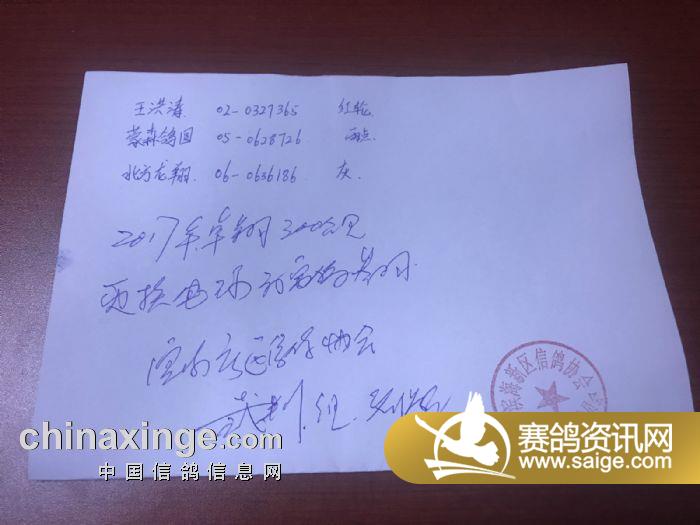 王洪涛 02-0327365 红轮
蒙森鸽园 05-0628726 雨点
北方龙翔 06-0636186 灰
2017年卓翔300公里
更换电环
滨海新区信鸽协会
裁判组
滨海新区信鸽协会
chinaxinge.com
中国信鸽信息网
赛鸽资讯网
www.saige.com